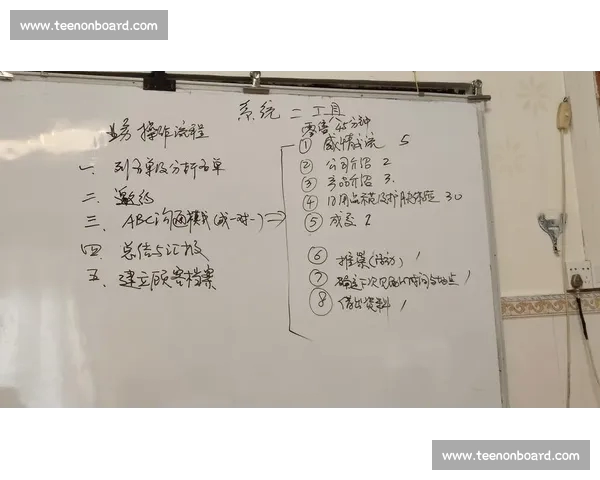 www.teenonboard.com
系统二工具
业务操作流程
一. 列名单及分析名单
二. 邀约
三. ABC沟通模式(或一对一)⇒
四. 总结与汇报
五. 建立顾客档案
零售 45分钟
① 感情交流 5
② 公司介绍 2
③ 产品介绍 3.
④ 日用品示范及护肤体验 30
⑤ 成交 2
⑥ 推崇(活动) 1
⑦ 确定下次见面的时间与地点 1
⑧ 借出资料 1
www.teenonboard.com